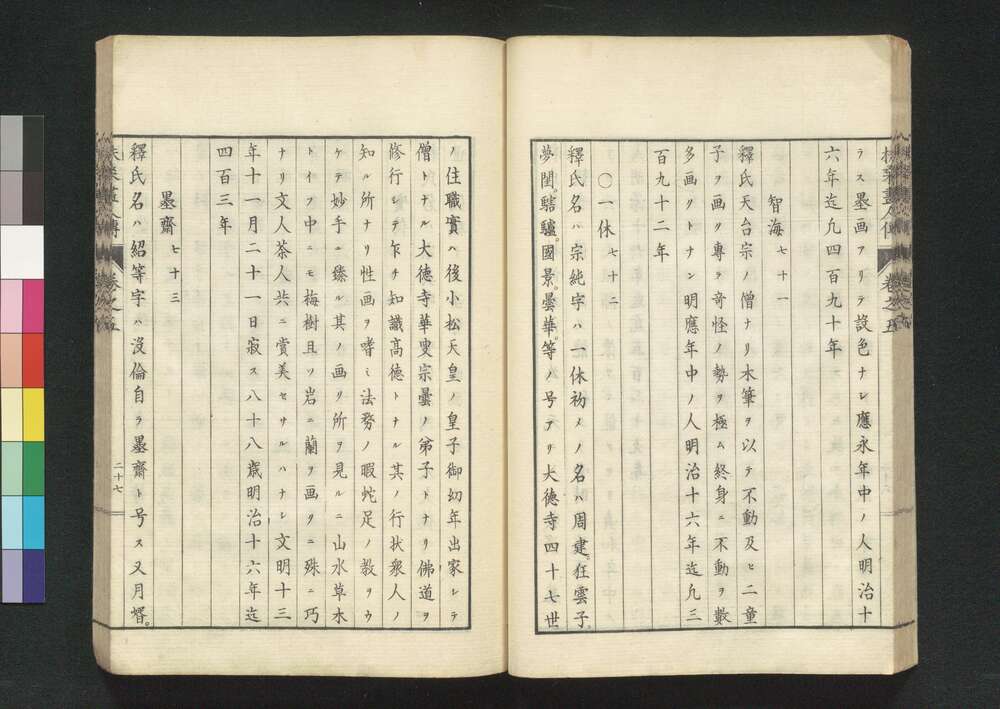 ラス墨画アリテ設色ナシ應永年中ノ人明治十
六年迄凡四百九十年
智海 七十一
釋氏天台宗ノ僧ナリ木筆ヲ以テ不動及ヒ二童
子ヲ画ク專ラ奇怪ノ勢ヲ極ム終身ニ不動ヲ數
多画クトナン明應年中ノ人明治十六年迄凡三
百九十二年
〇一休 七十二
釋氏名ハ宗純字ハ一休初メノ名ハ周建。狂雲子。
夢閨。瞎驢。國景。曇華。等ノ号アリ大德寺四十七世
ノ住職實ハ後小松天皇ノ皇子御幼年出家シテ
僧トナル大德寺華叟宗曇ノ弟子トナリ佛道ヲ
修行シテ乍チ知識高德トナル其ノ行狀衆人ノ
知ル所ナリ性画ヲ嗜ミ法務ノ暇蛇足ノ教ヲウ
ケテ妙手ニ臻ル其ノ画リ所ヲ見ルニ山水草木
トイフ中ニモ梅樹且ツ岩ニ蘭ヲ画クニ殊ニ巧
ナリ文人茶人共ニ賞美セサルハナシ文明十三
年十一月二十一日寂ス八十八歳明治十六年迄
四百三年
墨齋 七十三
釋氏名ハ紹等字ハ沒倫自ラ墨齋ト号ス又月壻。
扶桑畫人傳 卷之五
二十七